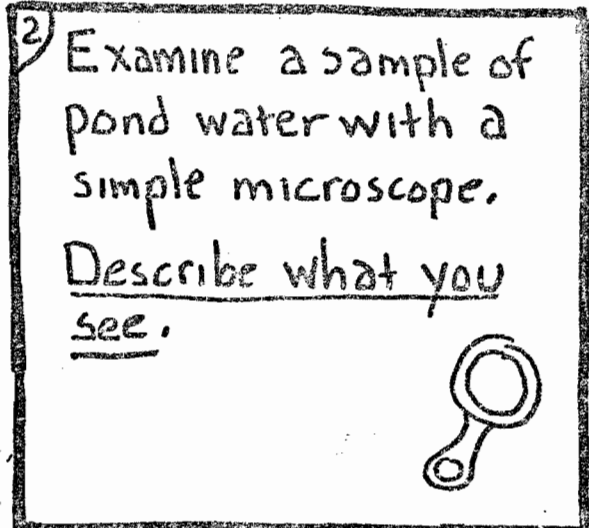 2
Examine a sample of
pond water with a
simple microscope.
Describe what you
see.